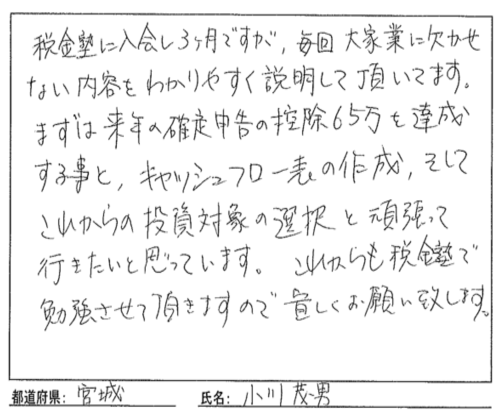 税金塾に入会し3ヶ月ですが、毎回 大家業に欠かせ
ない内容をわかりやすく説明して頂いてます。
まずは来年の確定申告の控除65万を達成
する事と、キャッシュフロー表の作成、そして
これからの投資対象の選択と頑張って
行きたいと思っています。 これからも税金塾で
勉強させて頂きますので宜しくお願い致します。
都道府県: 宮城 氏名: 小川 茂男